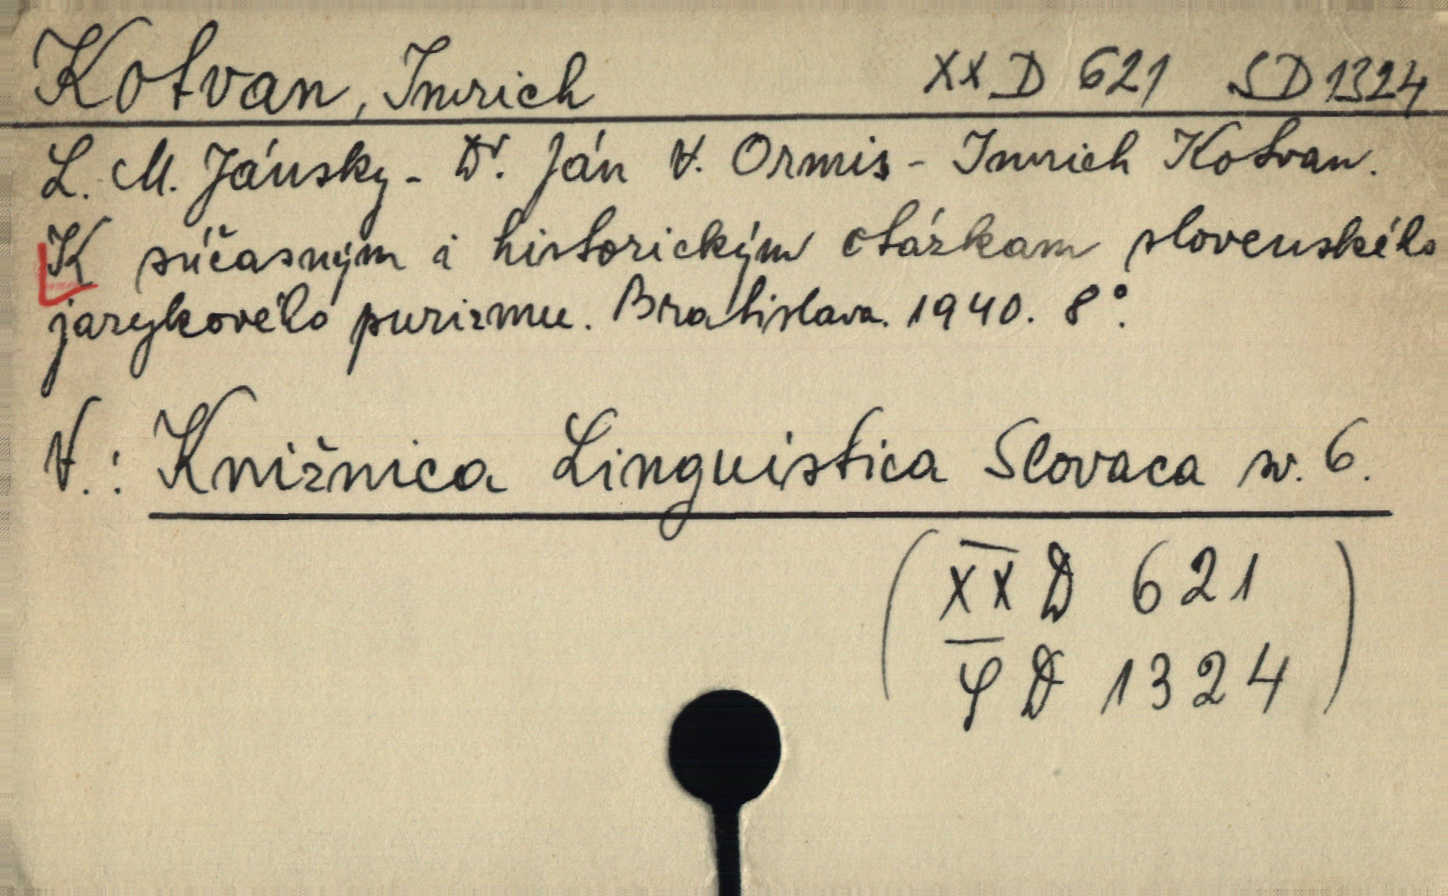 Kotvan, Imrich XX D 621 SD 1324
L. M. Jánsky - Dr. Ján V. Ormis - Imrich Kotvan.
K súčasným i historickým otázkam slovenského
jazykového purizmu. Bratislava. 1940. 8°.
V.: Knižnica Linguistica Slovaca sv. 6.
(XX D 621
D 1324)